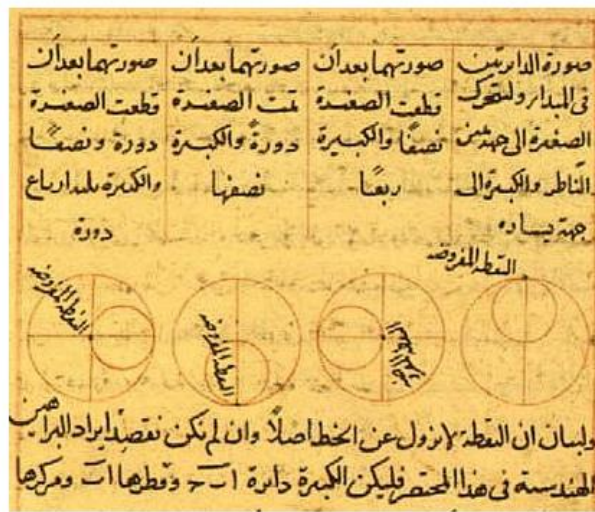 صورة الدايرتين
في المبدا ولتتحرك
الصغيرة الى جهة يمين
الناظر والكبيرة الى
جهة يساره
صورتهما بعد أن
قطعت الصغيرة
نصفًا والكبيرة
ربعًا
صورتهما بعد أن
تمت الصغيرة
دورةً والكبيرة
نصفها
صورتهما بعد أن
قطعت الصغيرة
دورة ونصفًا
والكبيرة ثلثة ارباع
دورة
النقطة المفروضة
النقطة المفروضة
النقطة المفروضة
ولبيان ان النقطة لا تزول عن الخط اصلًا وان لم نكن نقصد ايراد البراهين
الهندسية في هذا المختصر فليكن الكبيرة دائرة ا ب ح وقطرها ا ب ومركزها